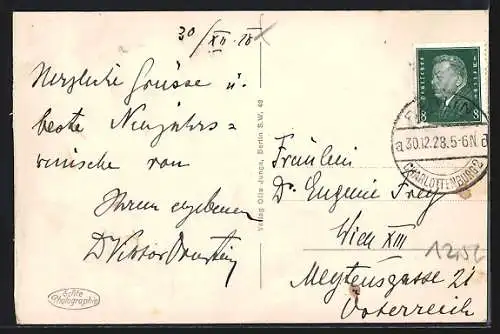 30/XII.28
Herzliche Grüsse u.
beste Neujahrs=
wünsche von
Ihrem ergebenen
D Viktor
Echte
Photographie
Verlag Otto Junga, Berlin S.W. 68
DEUTSCHES REICH
8 8
BERLIN
a 30.12.28.5-6N a
CHARLOTTENBURG 2
Fräulein
Dr. Eugenie Frey
Wien XIII
Meytensgasse 21
Österreich